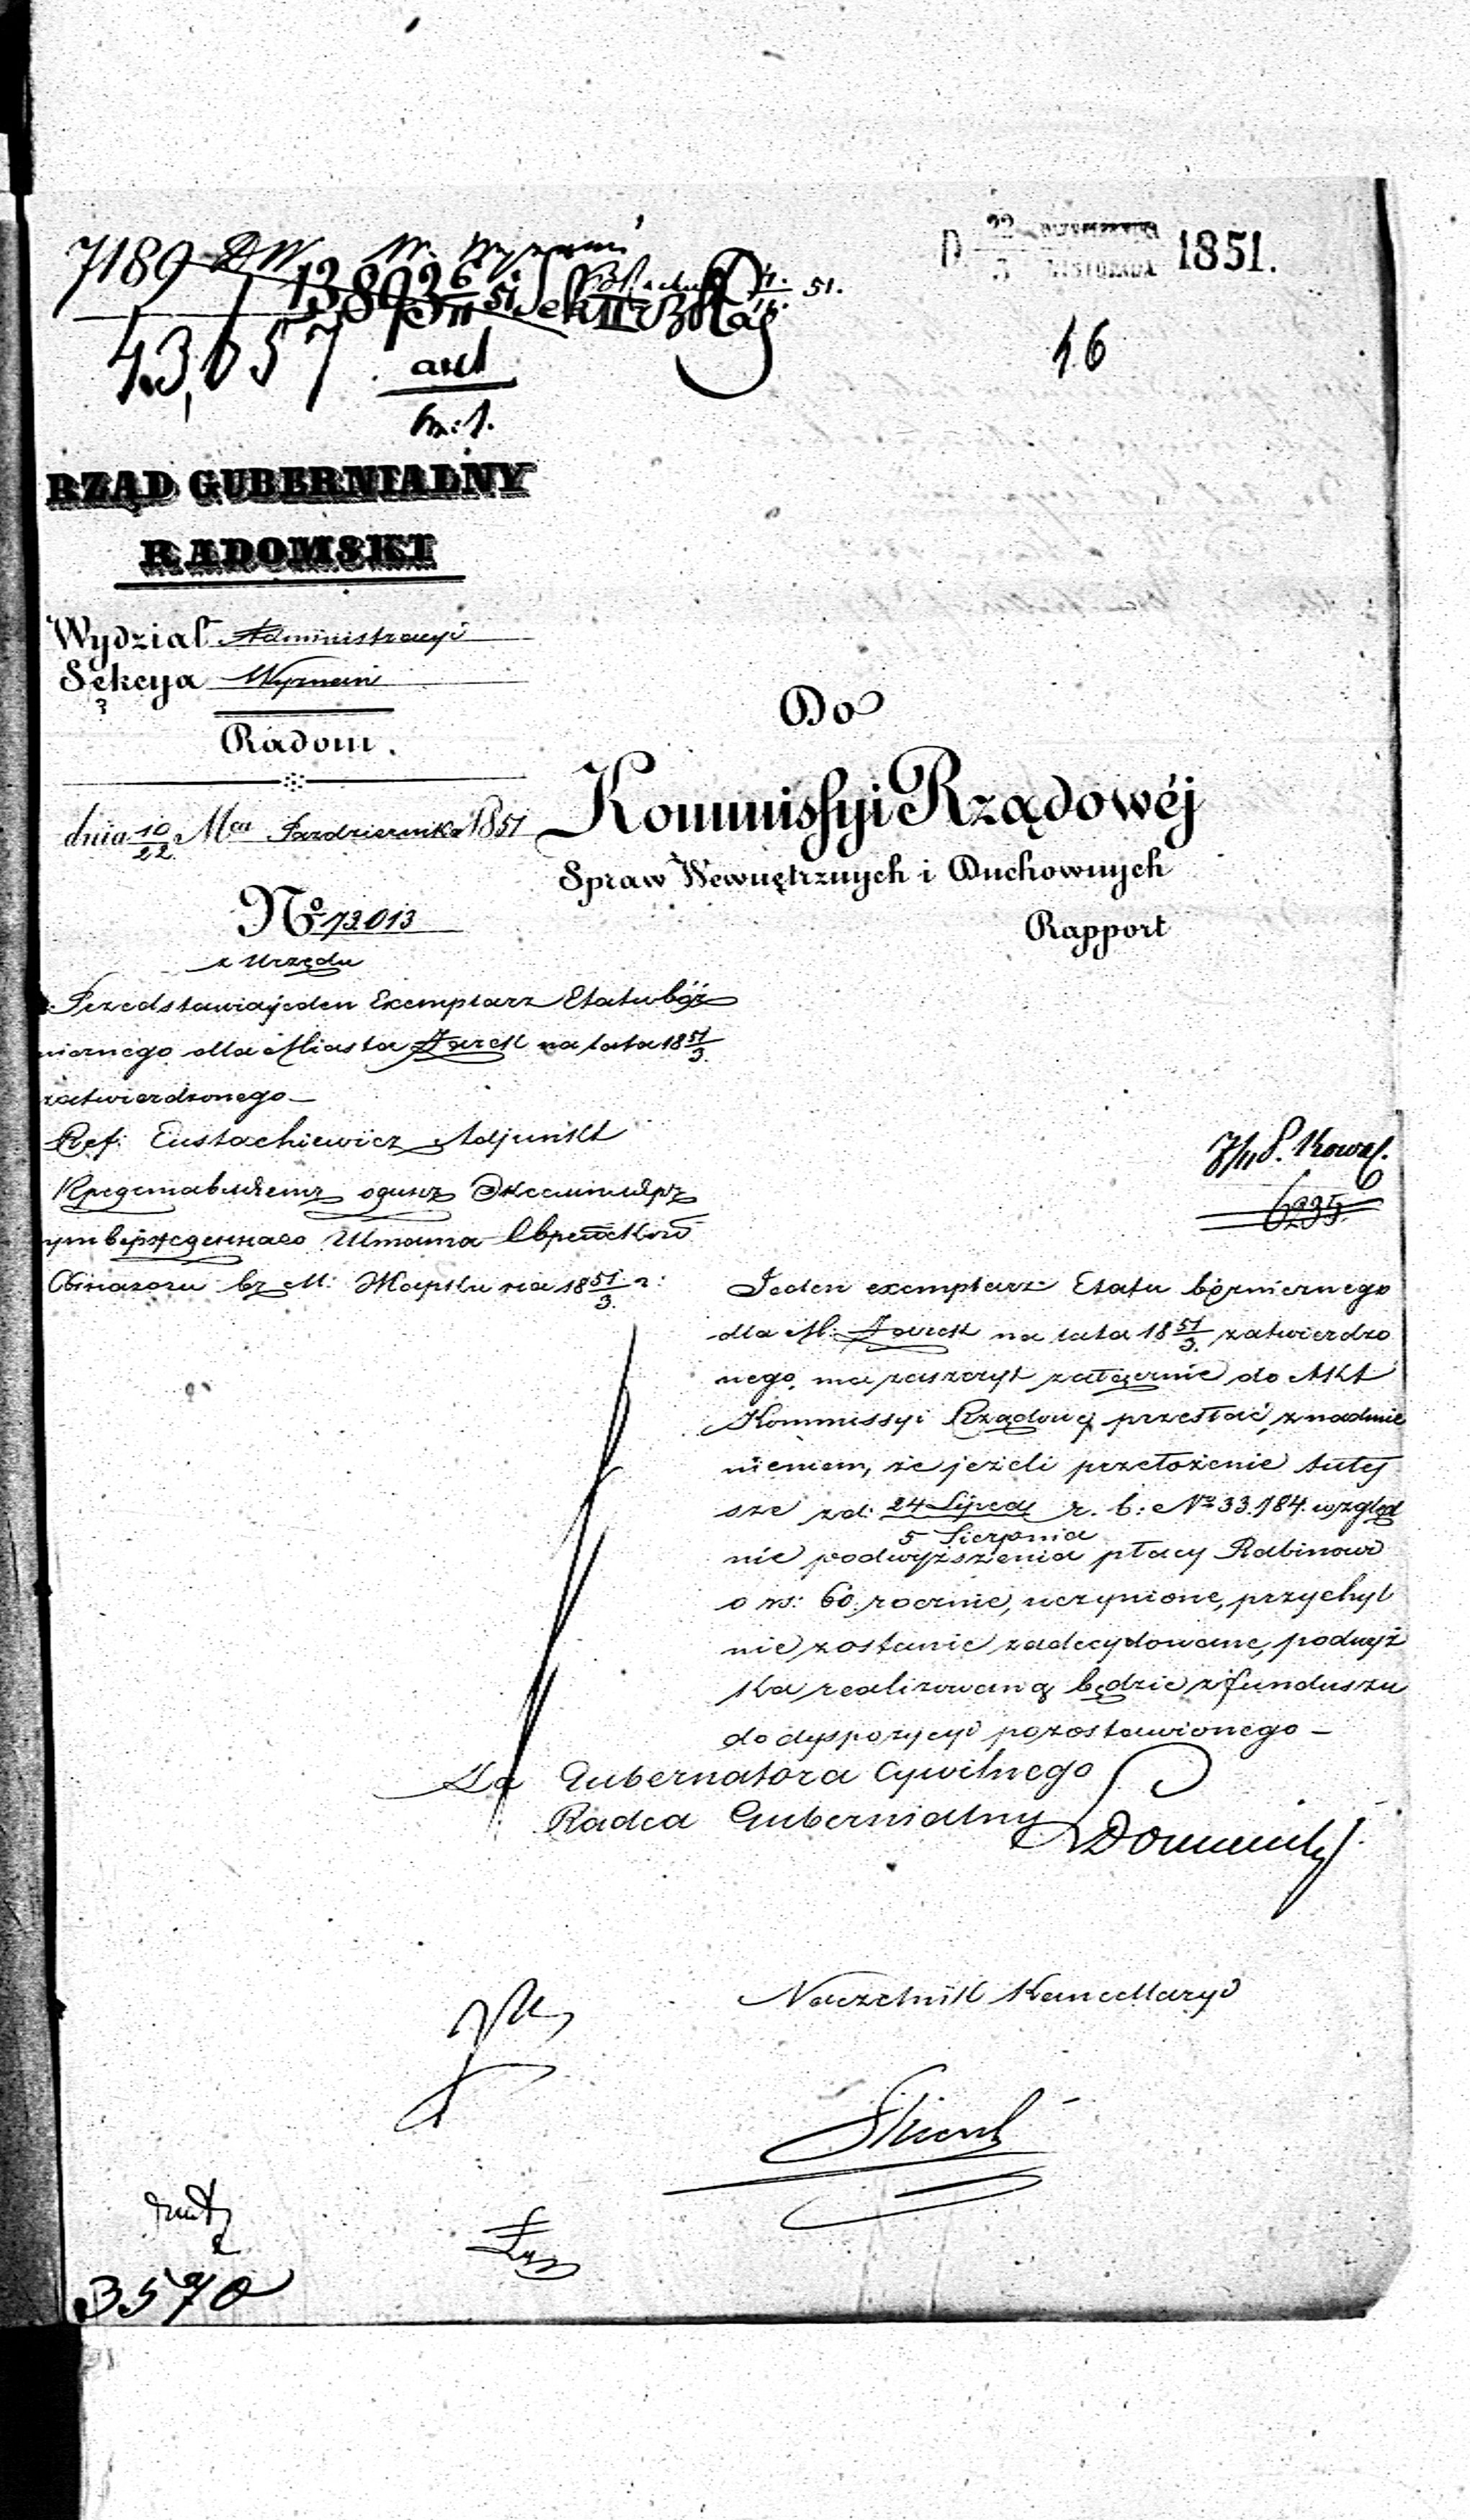 7189 DW W. Wyznań
13893 6/11 51 Sek II
D. 22/3 Października/Listopada 1851.
43,657
46
RZĄD GUBERNIALNY
RADOMSKI
Wydział Administracyi
Sekcya Wyznań
Radom.
dnia 10/22 Mca Października 1851
Do
Kommissyi Rządowéj
Spraw Wewnętrznych i Duchownych
Rapport
No 73013
z Urzędu
Przedstawia jeden Exemplarz Etatu boż
niczego dla Miasta Żarek na lata 18 51/3.
zatwierdzonego
Ref: Eustachiewicz Adjunkt
Представляетъ одинъ Экземпляръ
утвержденнаго Штата Еврейской
Синагоги въ М: Жарки на 18 51/3. г:
6235.
Jeden exemplarz Etatu bożniczego
dla M. Żarek na lata 18 51/3. zatwierdzo
nego, ma zaszczyt załącznie do Akt
Kommissyi Rządowej przesłać, z nadmie
nieniem, że jeżeli przełożenie tutej
sze z d: 24 Lipca/5 Sierpnia r. b: No 33.184. wzglę
nie podwyższenia płacy Rabinowi
o rs: 60. rocznie, uczynione, przychyl
nie zostanie zadecydowane, podwyż
ka realizowaną będzie z funduszu
do dyspozycyi pozostawionego
Za Gubernatora Cywilnego
Radca Gubernialny
Naczelnik Kancellaryi
3570